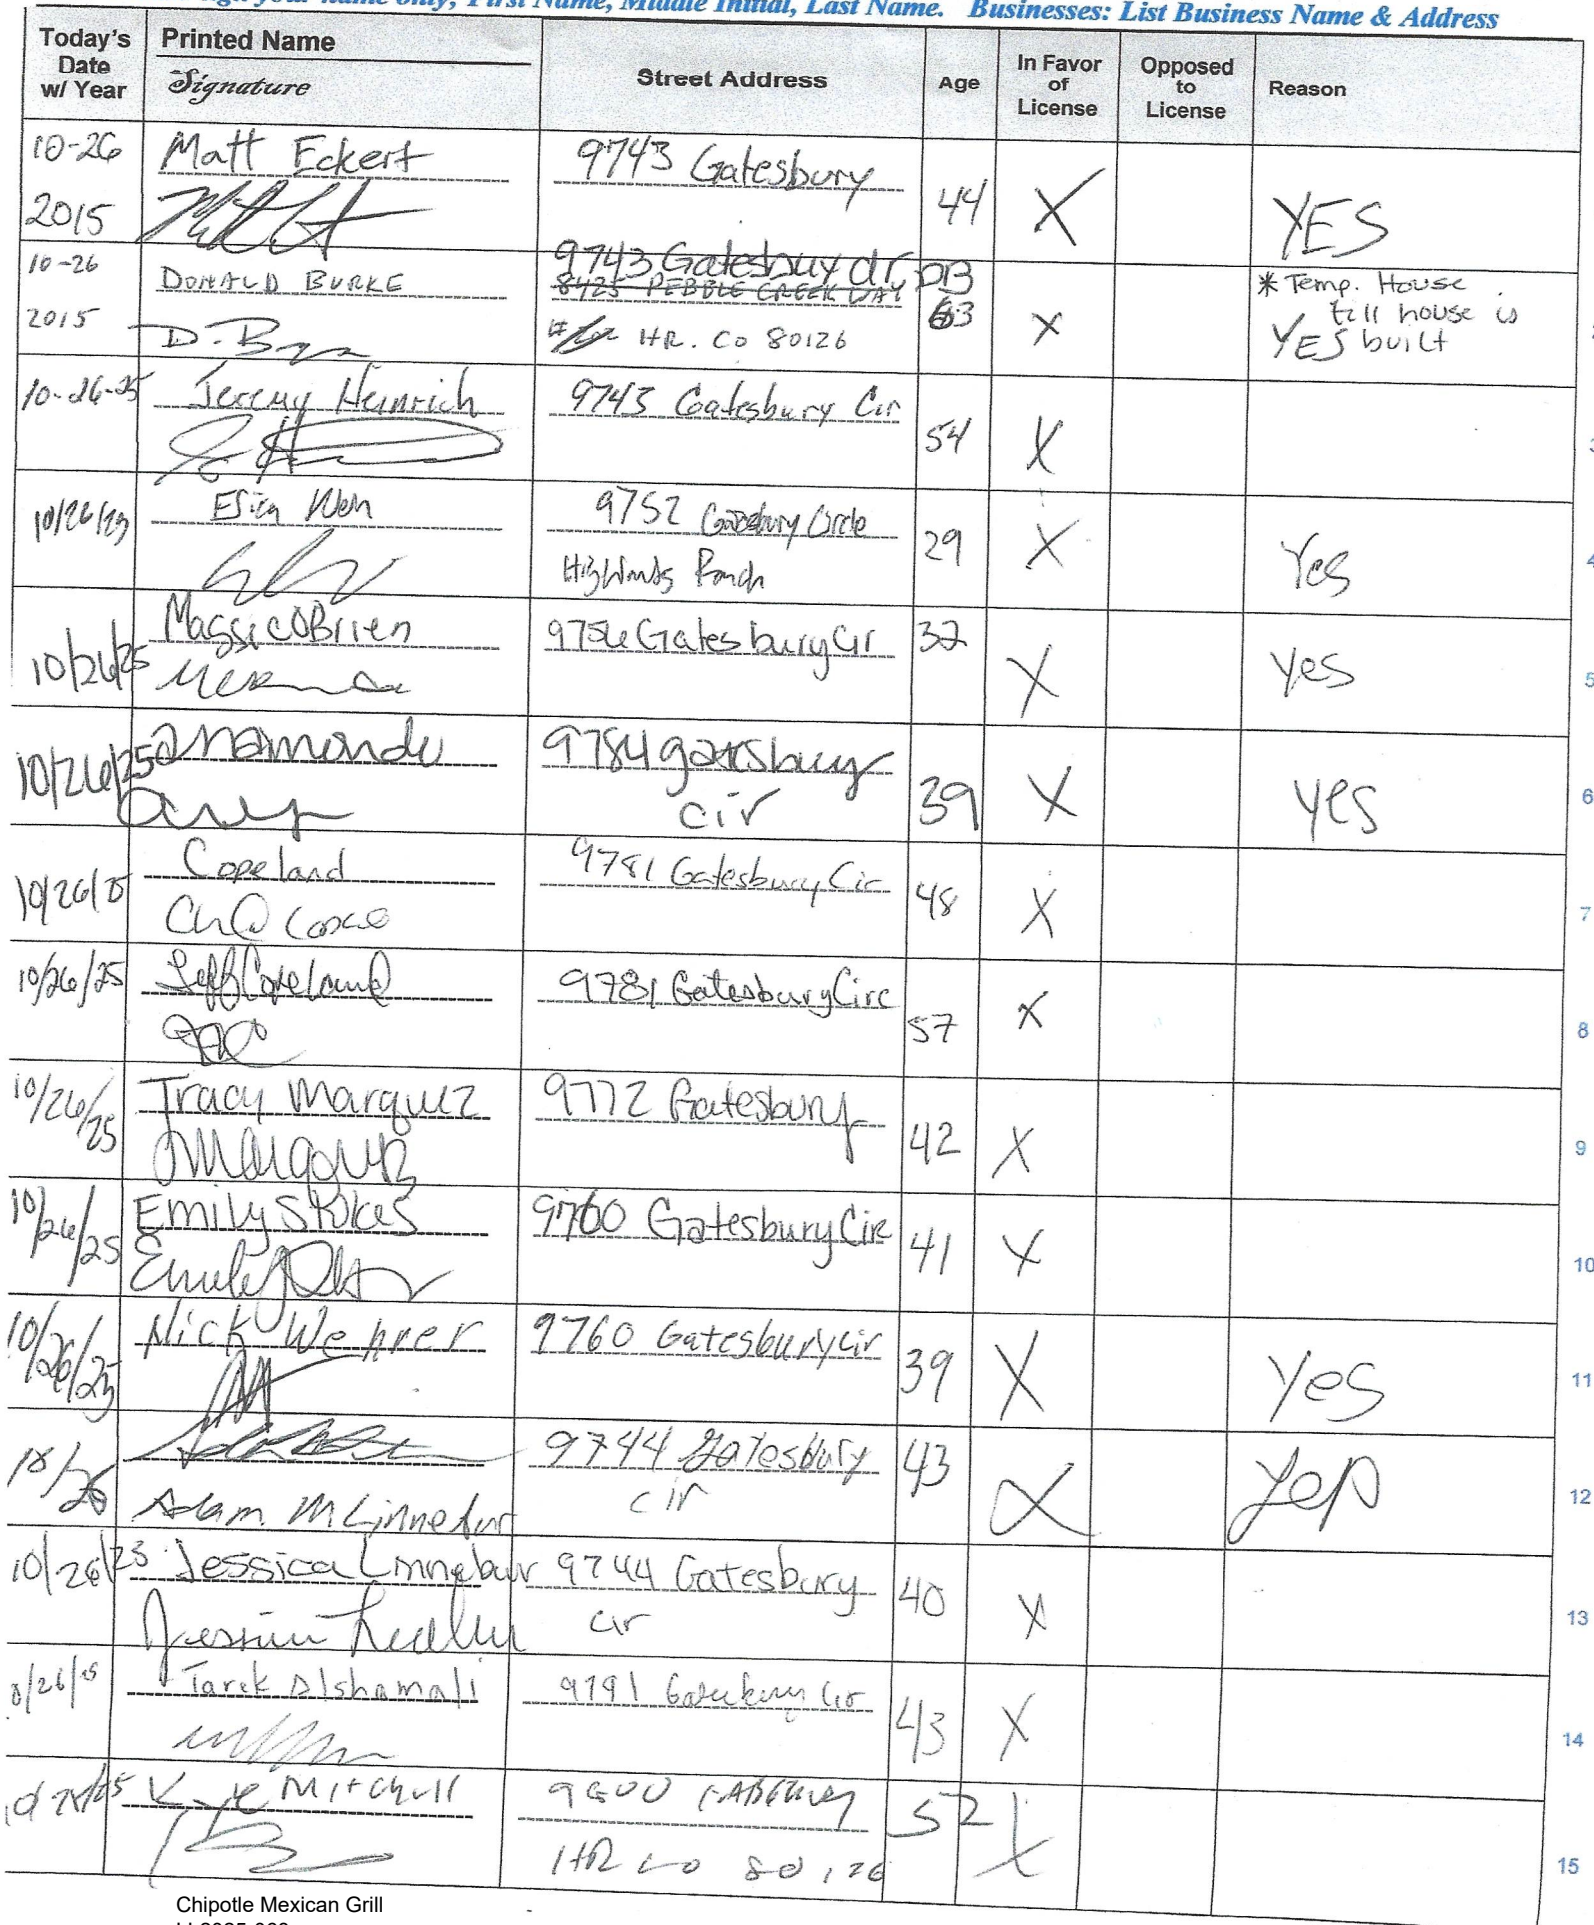 your name only, First Name, Middle Initial, Last Name. Businesses: List Business Name & Address
Today's Date w/ Year Printed Name Signature Street Address Age In Favor of License Opposed to License Reason
10-26 Matt Eckert 9743 Gatesbury
2015 44 X YES
10-26 DONALD BURKE 9743 Gatesbuy dr DB * Temp. House
8425 PEBBLE CREEK WAY till house is
2015 D. B HR. CO 80126 63 X YES built
10-26-25 Jeremy Heinrich 9743 Gatesbury Cir
54 X 3
10/26/25 9752 Circle
Highlands Ranch 29 X Yes 4
Maggie OBrien 9756 Gatesbury Cir 32
10/26/25 X yes 5
10/26/25 9784 gatesbury
cir 39 X yes 6
Copeland 9781 Gatesbury Cir
10/26/25 48 X 7
10/26/25 Jeff Copeland 9781 Gatesbury Circ
57 X 8
10/26/25 Tracy Marquez 9772 Gatesbury
42 X 9
10/26/25 Emily Stokes 9760 Gatesbury Cir
41 X 10
10/26/25 Nick Wehrer 9760 Gatesbury cir
39 X yes 11
10/26 9744 Gatesbury 43
Adam M Linnebur cir X yep 12
10/26/25 Jessica Linnebur 9744 Gatesbury 40
cir X 13
10/26/25 Tarek Alshamali 9791 Cir
43 X 14
Kye Mitchell 52 X
HR CO 80126 15
Chipotle Mexican Grill